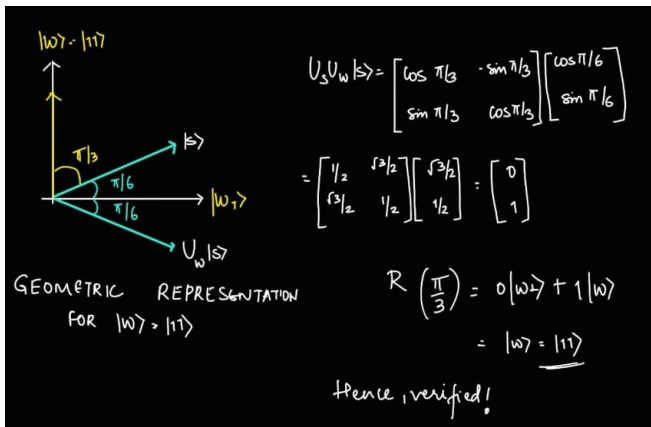 |w> = |11>
π/3
|s>
π/6
π/6
|w_T>
U_w|s>
GEOMETRIC REPRESENTATION
FOR |w> = |11>
U_s U_w |s> = [cos π/3 -sin π/3] [cos π/6]
[sin π/3 cos π/3] [sin π/6]
= [1/2 √3/2] [√3/2] = [0]
[√3/2 1/2] [1/2] [1]
R (π/3) = 0|w⊥> + 1|w>
= |w> = |11>
Hence, verified!